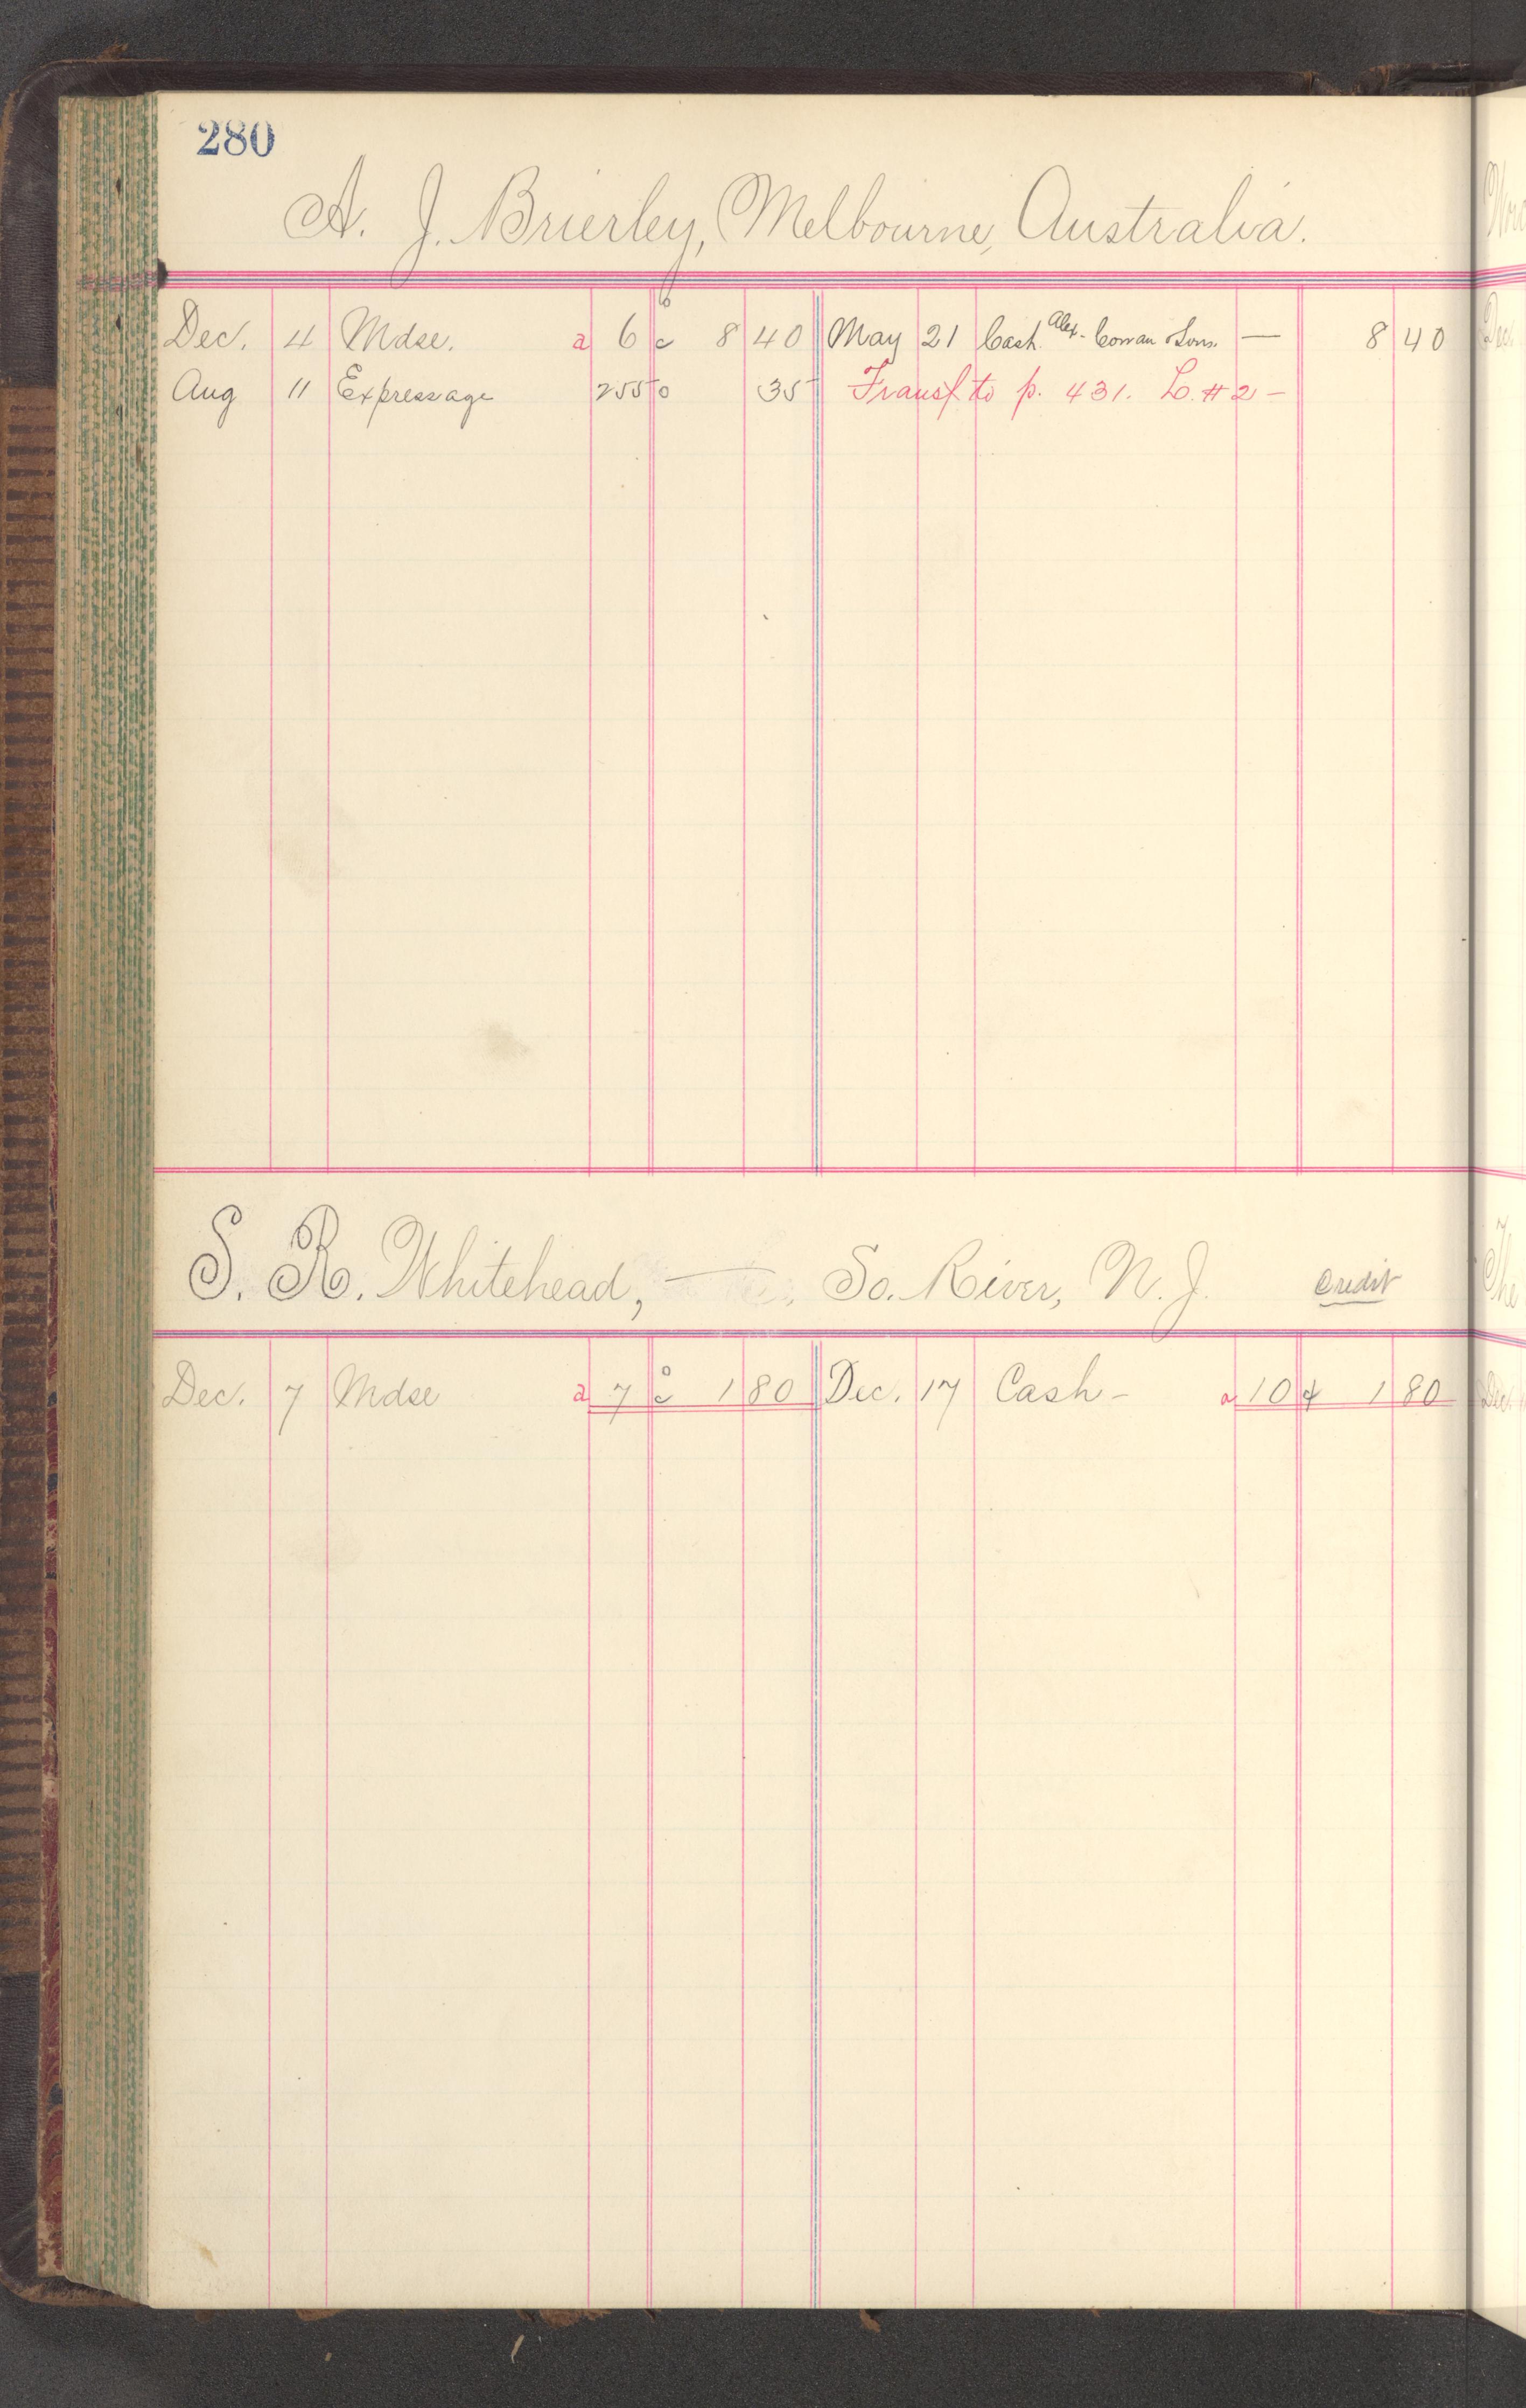 280
A. J. Brierley, Melbourne, Australia.
Dec. 4 Mdse. a 6 c 8 40 May 21 Cash Alex. Cowan & Sons — 8 40
Aug 11 Expressage 255 o 35 Transf to p. 431. L. #2 —
S. R. Whitehead, — So. River, N. J. Credit
Dec. 7 Mdse a 7 c 1 80 Dec. 17 Cash — a 10 1 80